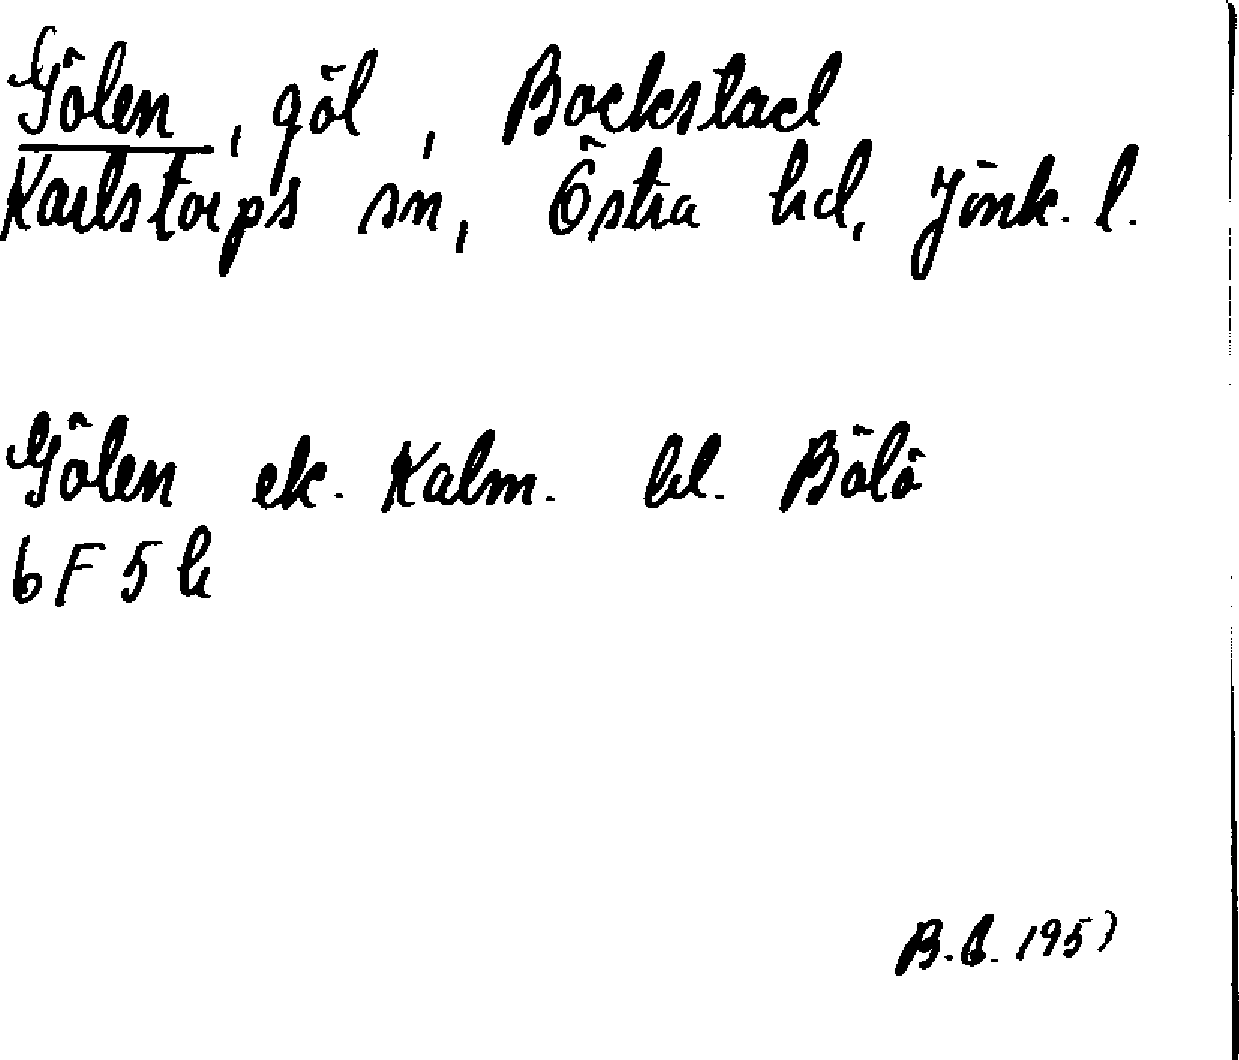 Gölen, göl, Bockstad
Karlstorps sn, Östra hd, Jönk. l.
Gölen ek. Kalm. bl. Bölö
6 F 5 h
B.G. 195